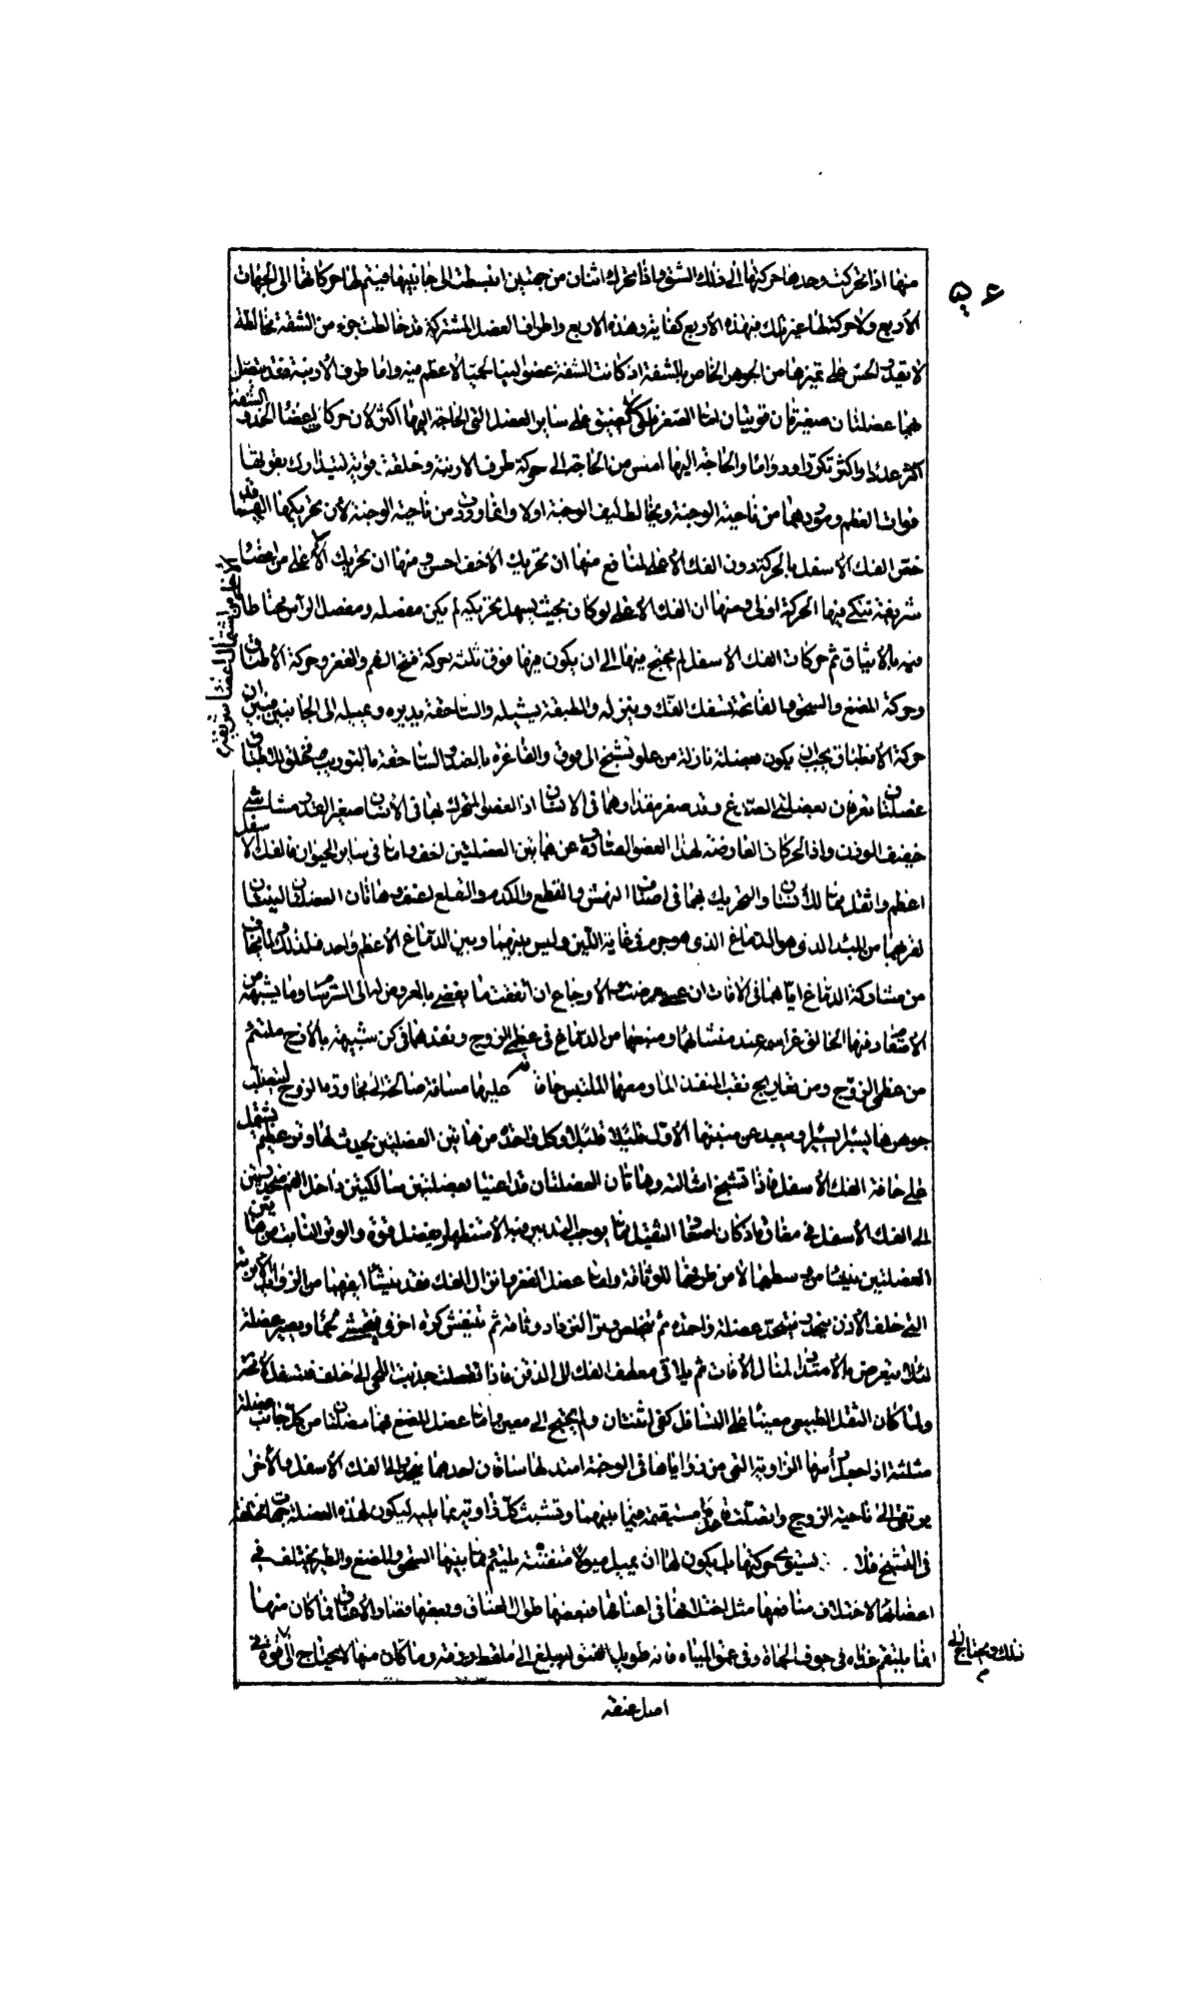 منها اذا تحركت وحدها حركتها الى ذلك الشق واذا تحرك اثنان من جهتين انبسطت الى جانبيها فيتم لها حركاتها الى الجهات
الاربع ولا حركة لها غير تلك فهذه الاربع كفاية وهذه الاربع واطراف العضل المشتركة قد خالطت جرم من الشفة مخالطة
لا يقدر الحس على تميزها من الجوهر الخاص بالشفة اذ كانت الشفة عضوا لينا لحميا لا عظم فيه واما طرف الارنبة فقد يتصل
بها عضلتان صغيرتان قويتان اما الصغر فلكى لا يضيق على ساير العضل التى الحاجة اليها اكثر لان حركات اعضاء الخد والشفة
اكثر عددا واكثر تكررا ودواما والحاجة اليها امس من الحاجة الى حركة طرف الارنبة وخلقت قوية ليتدارك بقوتها
فوات العظم وموردهما من ناحية الوجنة ويخالط ليف الوجنة اولا وانما وردت من ناحية الوجنة لان تحريكها اليهما قد
خص الفك الاسفل بالحركة دون الفك الاعلى لمنافع منها ان تحريك الاخف احسن ومنها ان تحريك الاخلى من اشتمال اعضاء
شريفة تنكى فيها الحركة اولى ومنها ان الفك الاعلى لو كان بحيث يسهل تحريكه لم يكن مفصله ومفصل الراس محتاطا
فيه بالايثاق ثم حركات الفك الاسفل لم يحتج فيها الى ان يكون فيها فوق ثلثة حركة فتح الفم والفغر وحركة الاطباق
وحركة المضغ والسحق فالفاتحة تسفك الفك وينزله والمطبقة يشيله والساحقة يديره ويميله الى الجانبين فبين ان
حركة الاطباق يجب ان يكون بعضلة نازلة من علو تشنج الى فوق والفاغرة بالضد والساحقة بالتوريب فخلق للاطباق
عضلتان تعرفان بعضلتى الصدغ وقد صغر مقدارهما فى الانسان اذ العضو المتحرك بهما فى الانسان صغير القدر مشاشى
خفيف الوزن واذ الحركات العارضة لهذا العضو الصادرة عن هاتين العضلتين اخف واما فى ساير الحيوان فالفك الاسفل
اعظم واثقل مما للانسان والتحريك بهما فى اصناف النهش والقطع والكدم والقلع اعنف وهاتان العضلتان لينتان
لقربهما من المبدا الذى هو الدماغ الذى هو جرم فى غاية اللين وليس بينهما وبين الدماغ الا عظم واحد فلذلك ولما يخاف
من مشاركة الدماغ اياهما فى الافات ان عرضت والاوجاع ان اتفقت ما يفضى بالعروض له الى السرسام وما يشبهه من
الاسقام دفنها الخالق عز اسمه عند منشائها ومنبعها من الدماغ فى عظمى الزوج ونفذهما فى كن شبيه بالازج ملتئم
من عظمى الزوج ومن تعاريج ثقب المنفذ المار معها الملتبس حافاته عليها مسافة صالحة الى مجاورة الزوج ليتصلب
جوهرها يسيرا يسيرا ويبعد عن منبتها الاول قليلا قليلا وكل واحدة من هاتين العضلتين يحدث لها وتر عظيم يشتمل
على حافة الفك الاسفل فاذا تشنج اشالته وهاتان العضلتان قد اعينتا بعضلتين سالكتين داخل الفم منحدرتين
الى الفك الاسفل فى مغارتين اذ كان اصعاد الثقيل مما يوجب التدبير فيه الاستظهار بفضل قوة والوتر النابت من هاتين
العضلتين ينشا من وسطهما لا من طرفهما للوثاقة واما عضل الفغر وانزال الفك فقد ينشا ليفها من الزوايد الابرية
التى خلف الاذن فيتحد عضلة واحدة ثم تتخلص وترا ليزداد وثاقة ثم تنتفش كرة اخرى فتحتشى لحما ويصير عضلة
لئلا يتعرض بالامتداد لمنال الافات ثم يلاقى معطف الفك الى الذقن فاذا تقلصت جذبت اللحى الى خلف فتسفل لا محالة
ولما كان الثقل الطبيعى معينا على التسافل كفى اثنتان ولم يحتج الى معين واما عضل المضغ فهما عضلتان من كل جانب عضلة
مثلثة اذا جعل راسها الزاوية التى من زواياها فى الوجنة امتد لها ساقان احدهما ينحدر الى الفك الاسفل والاخر
يرتقى الى ناحية الزوج واتصلت قاعدة مستقيمة فيما بينهما وتشبثت كل زاوية بما يليه ليكون لهذه العضلة جهات مختلفة
فى التشنج فلا يستوى حركتها بل يكون لها ان يميل ميولا متفننة يلتئم فيما بينها السحق والمضغ والطير يختلف فى
اعضائها لاختلاف منافعها مثل اختلافها فى اعناقها فبعضها طوال الاعناق وبعضها قصار الاعناق فما كان منها
انما يلتقم غذاه فى جوف الحماة وفى عمق المياه فانه طويل العنق ليبلغ الى ملتقط رزقه وما كان منها لا يحتاج الى ذلك ويحتاج الى قوة فى
اصل عنقه